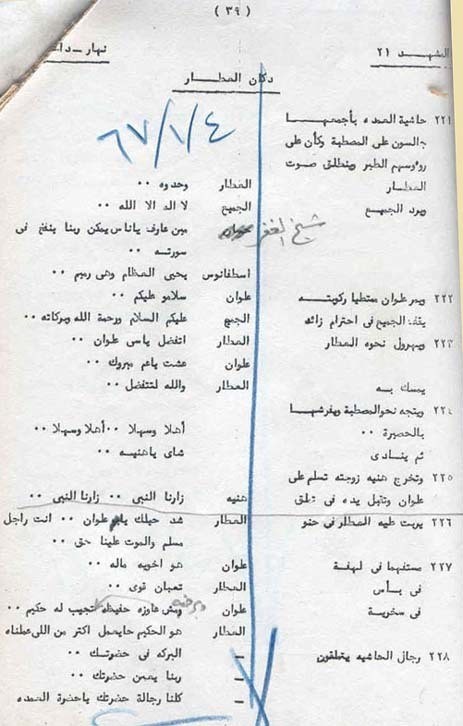 ( ٣٩ )
المشهد ٢١
نهار - دا
دكان العطار
٦٧/١/٤
٢٢١ حاشية العمده بأجمعها
جالسون على المصطبة وكأن على
رؤوسهم الطير وينطلق صوت
العطار
العطار وحدوه ..
ويرد الجميع
الجميع لا اله الا الله ..
شيخ الغفر
مين عارف ياناس يمكن ربنا ينفخ فى
سورته ..
اسطفانوس يحيى العظام وهى رميم ..
٢٢٢ ويمر علوان ممتطيا ركوبته
علوان سلامو عليكم ..
يقف الجميع فى احترام زائد
الجميع عليكم السلام ورحمة الله وبركاته ..
٢٢٣ ويهرول نحوه العطار
العطار اتفضل ياسى علوان ..
علوان عشت ياعم مبروك ..
يمسك به
العطار والله لتتفضل ..
٢٢٤ ويتجه نحو المصطبة ويفرشها
بالحصيرة ..
أهلا وسهلا .. أهلا وسهلا ..
ثم ينادى
شاى ياهنيه ..
٢٢٥ وتخرج هنيه زوجته تسلم على
علوان وتقبل يده فى تملق
هنيه زارنا النبى .. زارنا النبى ..
٢٢٦ يربت عليه العطار فى حنو
العطار شد حيلك يا علوان .. انت راجل
مسلم والموت علينا حق ..
٢٢٧ مستفهما فى لهفة
علوان هو اخويه ماله ..
فى يأس
العطار تعبان قوى ..
فى سخرية
علوان ومش عاوزه حفيظه تجيب له حكيم ..
العطار هو الحكيم حايعمل اكتر من اللى عملناه
٢٢٨ رجال الحاشيه يتملقون
ـ البركه فى حضرتك ..
ـ ربنا يحسن حضرتك ..
ـ كلنا رجالة حضرتك ياحضرة العمده